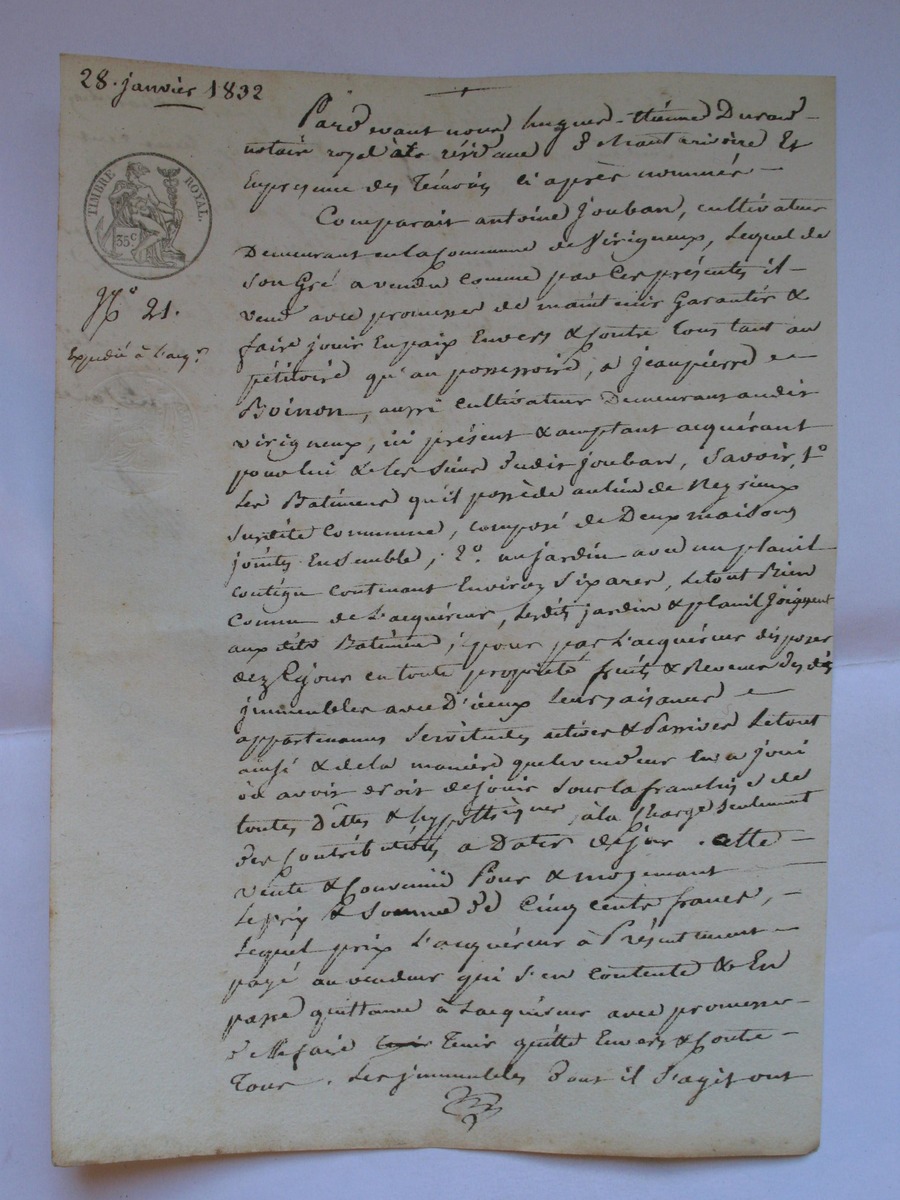 28. janvier 1832
TIMBRE ROYAL.
35c
N.o 21.
Expedié à l'acq.r
Pard evant nous hugues-étiénne Durand
notaire royal à la résidance de Chantérivoire Et
En présence des Témoins ci après nommés
Comparait antoine Jouban, cultivateur
Demeurant en la Commune de Virigneux, Lequel de
Son Gré a vendu comme par Ces présentes il
vend avec promesse de maintenir Garantir &
faire jouir En paix Envers & Contre Tous tant au
pétitoire qu'au possessoire, a jeanpierre
Boinon, aussi Cultivateur Demeurant audit
virigneux, ici présent & acceptant acquérant
pour lui & les Siens dudit jouban, Savoir, 1o
Les Batimens qu'il possède au lieu de Negrieux
Susdite Commune, composé de Deux maisons
jointes Ensemble; 2o. un jardin avec un plani
contigu contenant Environ Six ares, Le tout Bien
Connu de L'acquéreur, Lesdits jardin & plani joignent
aux dits Batimens; pour par L'acquéreur disposer
dez Cejour en toute propriété fruits & Revenus des dits
immeubles avec D'iceux Leurs aisances
appartenances Servitudes actives & Passives Le tout
ainsi & de la manière que le vendeur en a joui
ou avoit droit de jouir Sous la franchise de
toutes Dettes & hypothèques, à la Charge Seulement
des Contributions a Dater de ce jour. Cette
vente & Convenue Pour & moyenant
Le prix & Somme de Cinq cents francs,
Lequel prix L'acquéreur à Présentement
payé au vendeur qui s'en contente & En
passe quittance à L'acquéreur avec promesse
d'elle faire Tenir quitte Envers & Contre
Tous. Les immeubles dont il S'agit ont